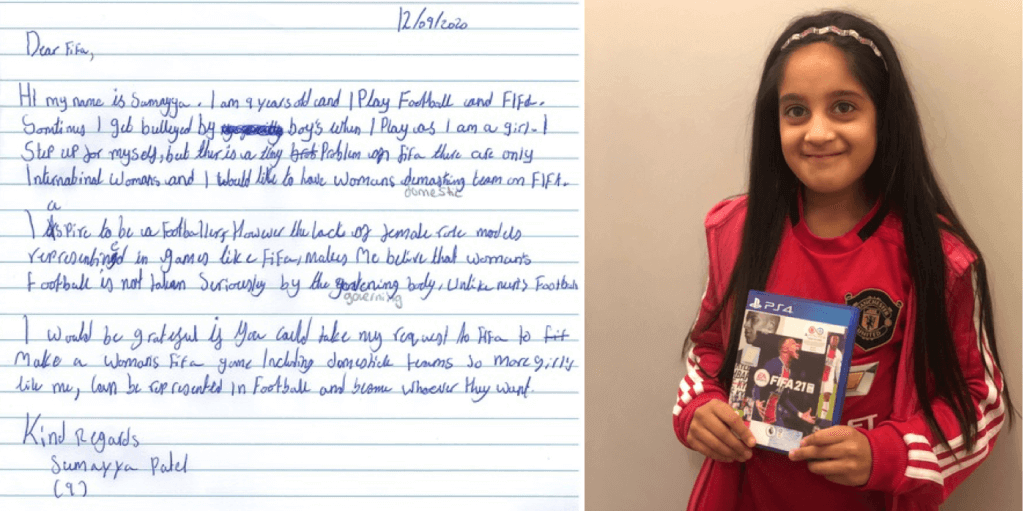 12/09/2020
Dear Fifa,
Hi my name is Sumayya. I am 9 years old and I Play Football and FIFA.
Somtimes I get bulleyed by boy's when I Play as I am a girl. I
Step up for myself, but ther is a tiny Problem on fifa there are only
Internatinal Womans and I would like to have womans demasting team on FIFA.
domestic
a
I spire to be a Footballer, However the lack of female role models
representing in games like FiFa, makes Me believe that woman's
e
Football is not taken Seriously by the body, Unlike men's Football
governing
I would be grateful if You could take my request to Fifa to
Make a womans Fifa game Including domestick teams so more girls
like me, can be represented in Football and become whoever they want.
Kind Regards
Sumayya Patel
(9)
PS4
EA SPORTS
FIFA 21
MANCHESTER
UNITED